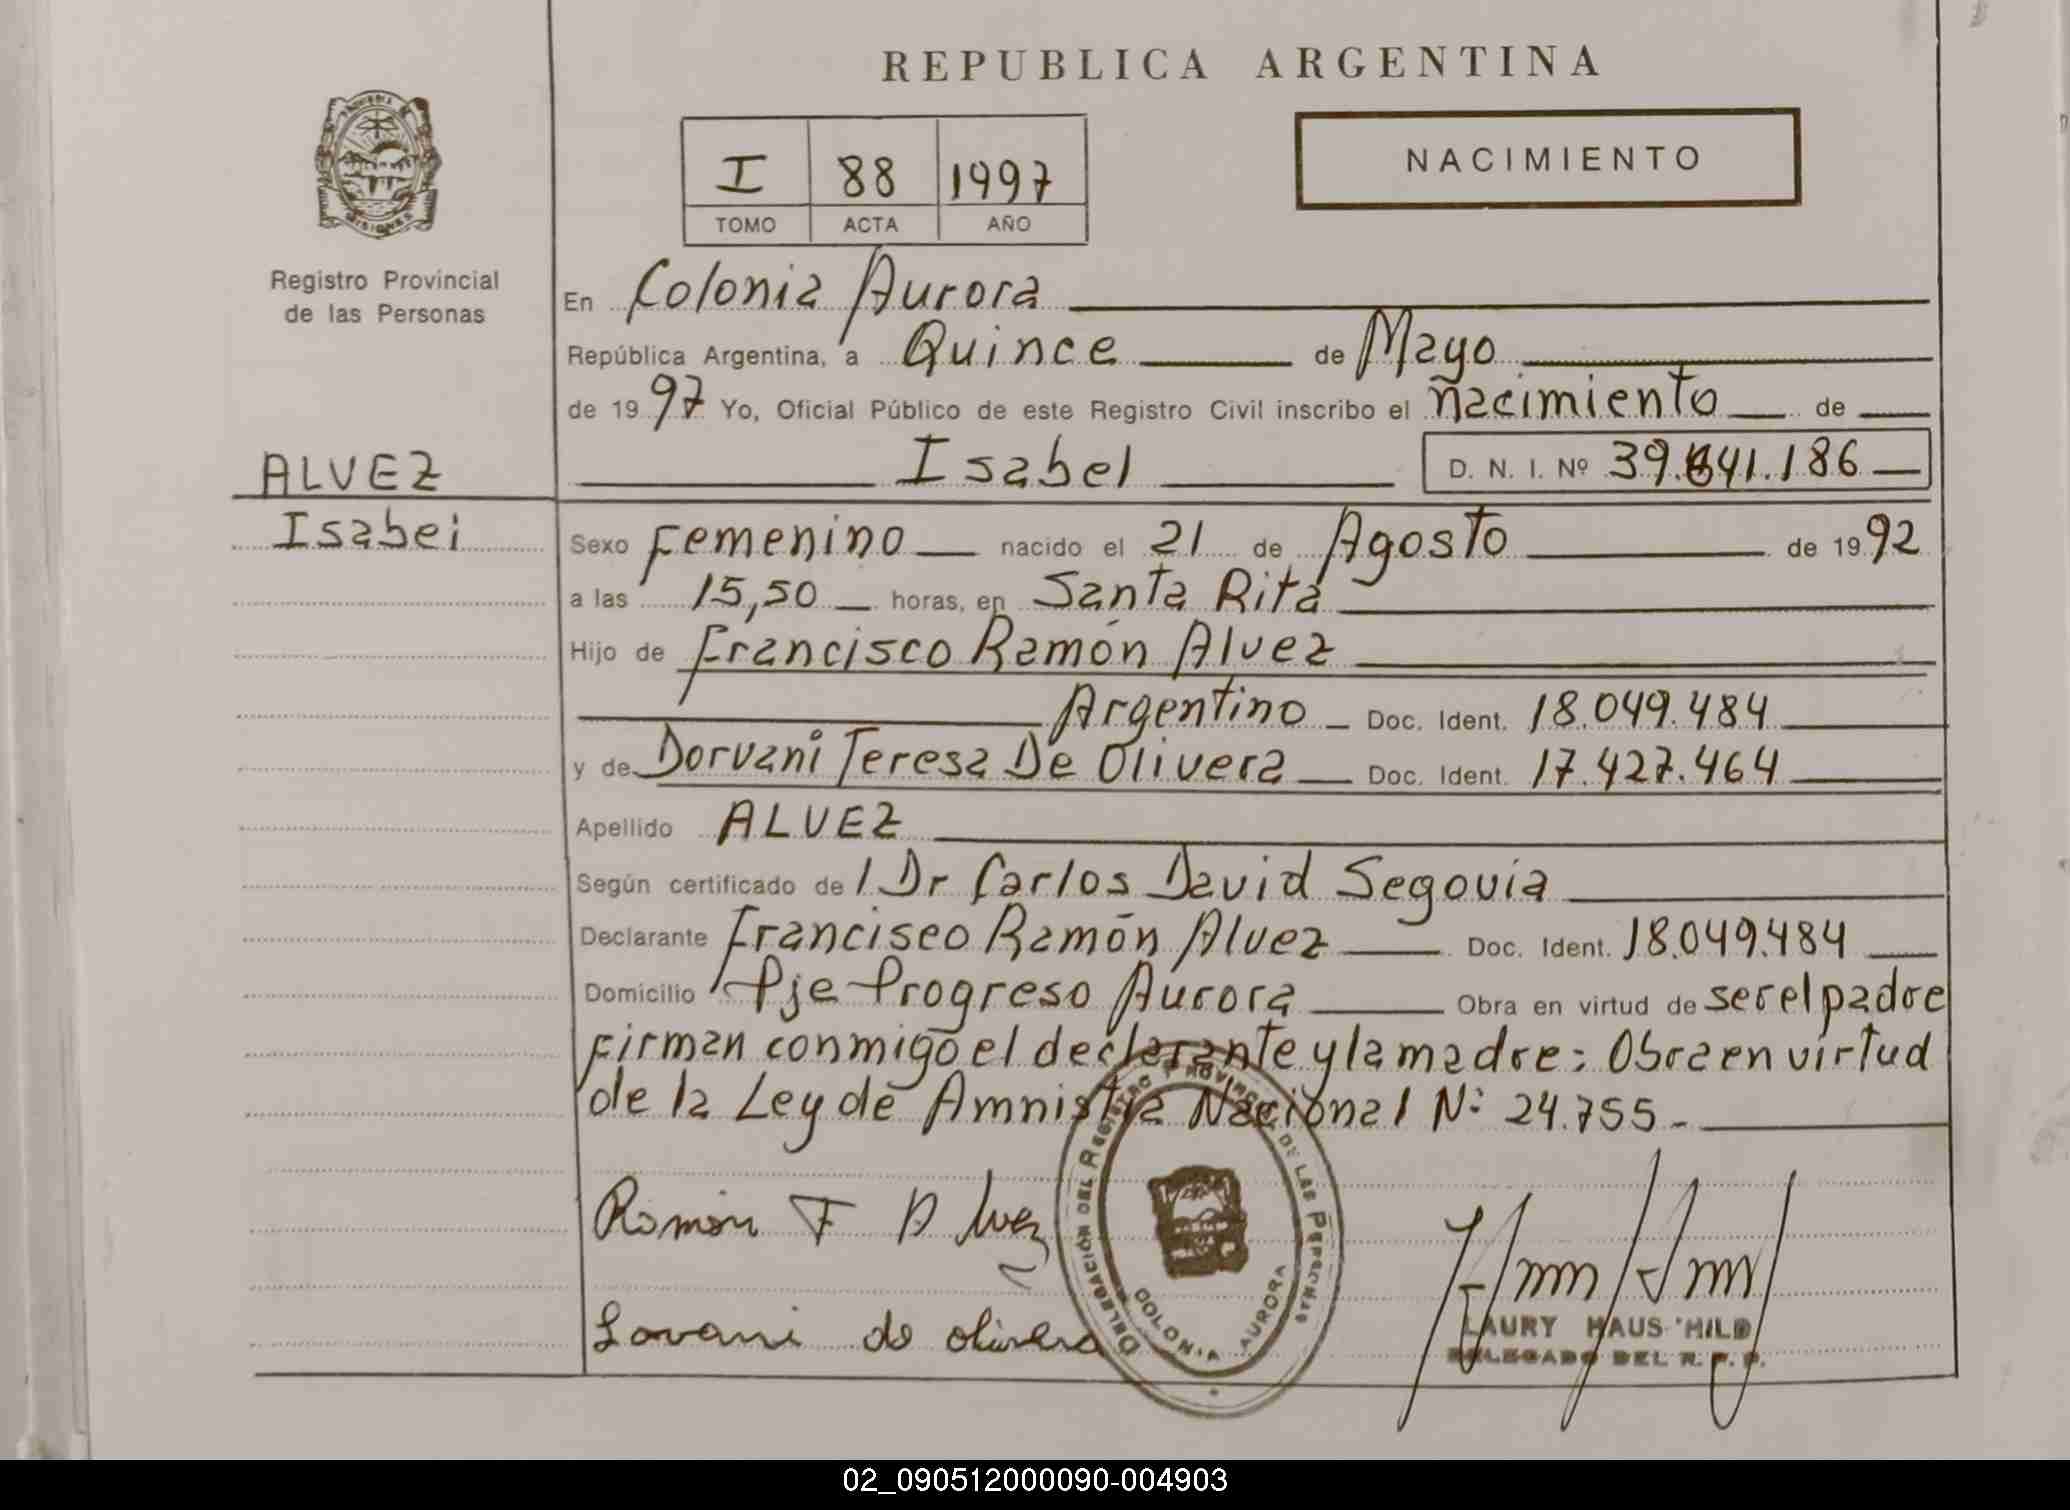 REPUBLICA ARGENTINA
NACIMIENTO
I 88 1997
TOMO ACTA AÑO
MISIONES
Registro Provincial
de las Personas
En Colonia Aurora
República Argentina, a Quince de Mayo
de 1997 Yo, Oficial Público de este Registro Civil inscribo el nacimiento de
Isabel D. N. I. Nº 39.641.186
ALVEZ
Isabel
Sexo Femenino nacido el 21 de Agosto de 1992
a las 15,50 horas, en Santa Rita
Hijo de Francisco Ramón Alvez
Argentino Doc. Ident. 18.049.484
y de Dorvani Teresa De Olivera Doc. Ident. 17.427.464
Apellido ALVEZ
Según certificado de l Dr Carlos David Segovia
Declarante Francisco Ramón Alvez Doc. Ident. 18.049.484
Domicilio Pje Progreso Aurora Obra en virtud de ser el padre
Firman conmigo el declarante y la madre: Obra en virtud
de la Ley de Amnistia Nacional Nº 24.755.-
Ramón F Alvez
Lovani de olivera
DELEGACIÓN DEL REGISTRO PROVINCIAL DE LAS PERSONAS
COLONIA AURORA
LAURY HAUS HILD
DELEGADO DEL R. P. P.
02_090512000090-004903